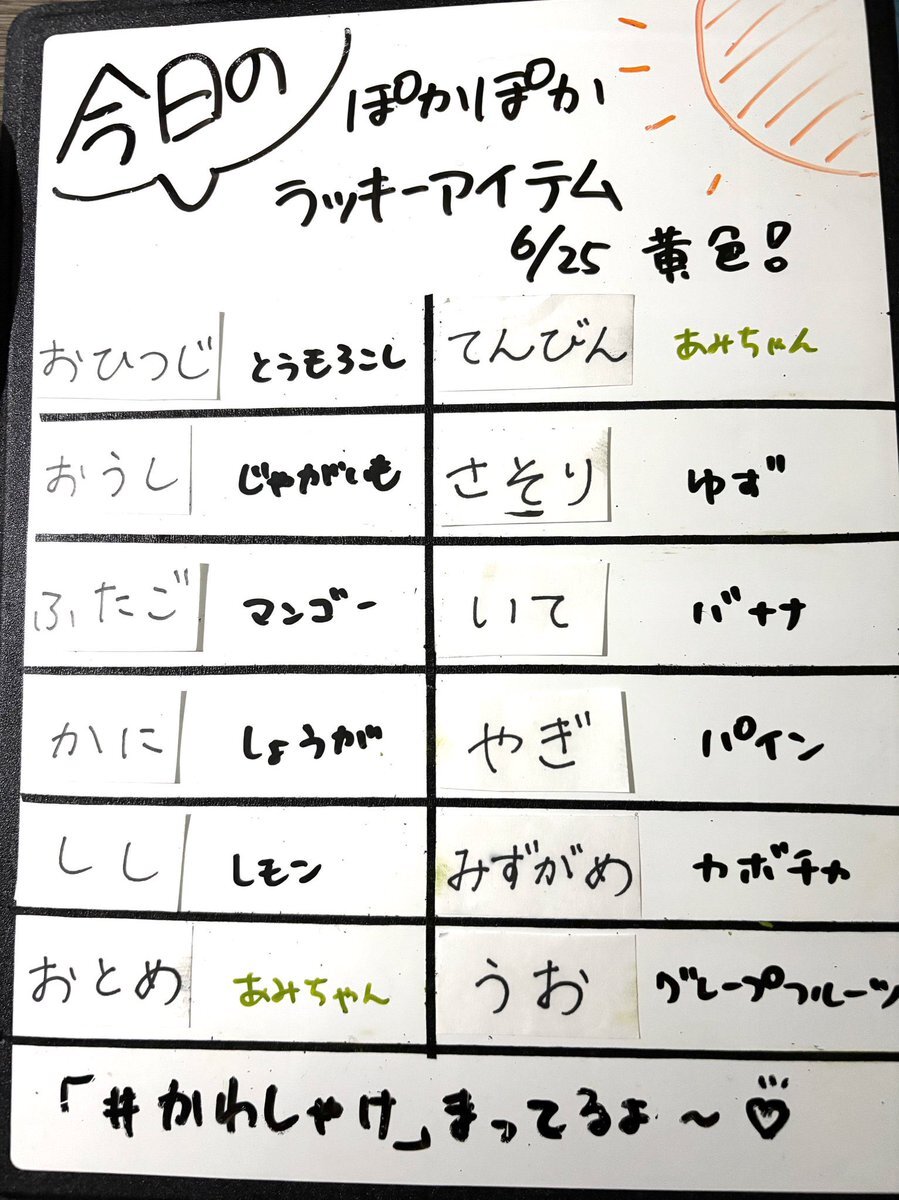 今日の
ぽかぽか
ラッキーアイテム
6/25 黄色!
おひつじ とうもろこし
おうし じゃがいも
ふたご マンゴー
かに しょうが
しし レモン
おとめ あみちゃん
てんびん あみちゃん
さそり ゆず
いて バナナ
やぎ パイン
みずがめ カボチャ
うお グレープフルーツ
「#かわしゃけ」まってるよ〜♡